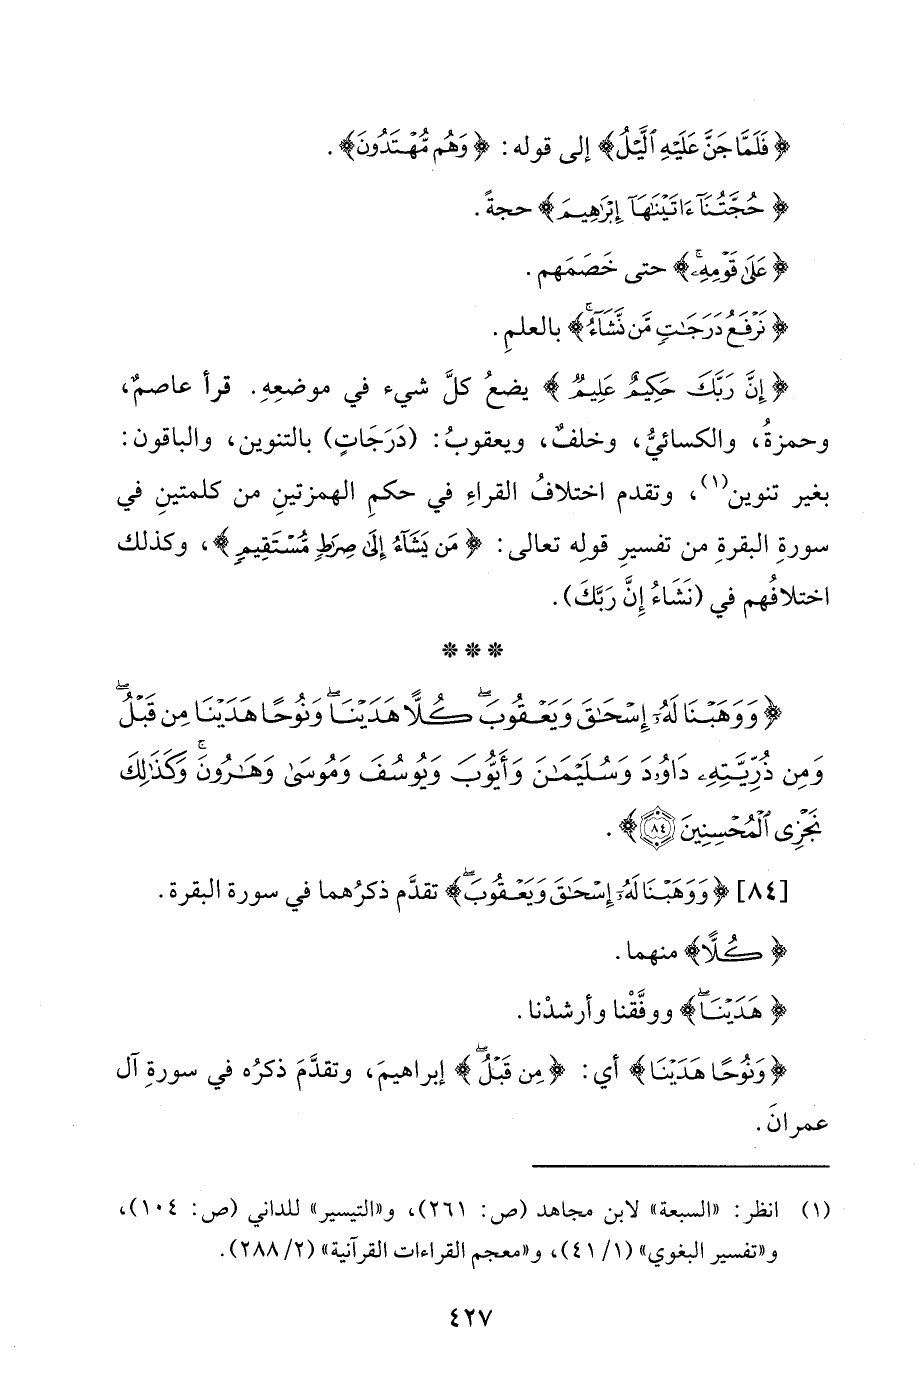 ﴿فَلَمَّا جَنَّ عَلَيْهِ ٱلَّيْلُ﴾ إلى قوله: ﴿وَهُم مُّهْتَدُونَ﴾.
﴿حُجَّتُنَآ ءَاتَيْنَٰهَآ إِبْرَٰهِيمَ﴾ حجةً.
﴿عَلَىٰ قَوْمِهِۦۚ﴾ حتى خَصَمَهم.
﴿نَرْفَعُ دَرَجَٰتٍ مَّن نَّشَآءُۗ﴾ بالعلمِ.
﴿إِنَّ رَبَّكَ حَكِيمٌ عَلِيمٌ﴾ يضعُ كلَّ شيء في موضعِهِ. قرأ عاصمٌ،
وحمزةُ، والكسائيُّ، وخلفٌ، ويعقوبُ: (دَرَجَاتٍ) بالتنوين، والباقون:
بغير تنوين(١)، وتقدم اختلافُ القراءِ في حكمِ الهمزتينِ من كلمتينِ في
سورةِ البقرةِ من تفسيرِ قولِه تعالى: ﴿مَن يَشَآءُ إِلَىٰ صِرَٰطٍ مُّسْتَقِيمٍ﴾، وكذلك
اختلافُهم في (نَشَاءُ إِنَّ رَبَّكَ).
***
﴿وَوَهَبْنَا لَهُۥٓ إِسْحَٰقَ وَيَعْقُوبَۖ كُلًّا هَدَيْنَاۖ وَنُوحًا هَدَيْنَا مِن قَبْلُۖ
وَمِن ذُرِّيَّتِهِۦ دَاوُۥدَ وَسُلَيْمَٰنَ وَأَيُّوبَ وَيُوسُفَ وَمُوسَىٰ وَهَٰرُونَۚ وَكَذَٰلِكَ
نَجْزِى ٱلْمُحْسِنِينَ ٨٤﴾.
[٨٤] ﴿وَوَهَبْنَا لَهُۥٓ إِسْحَٰقَ وَيَعْقُوبَۖ﴾ تقدَّم ذكرُهما في سورة البقرة.
﴿كُلًّا﴾ منهما.
﴿هَدَيْنَاۖ﴾ ووفَّقْنا وأرشدْنا.
﴿وَنُوحًا هَدَيْنَا﴾ أي: ﴿مِن قَبْلُۖ﴾ إبراهيمَ، وتقدَّمَ ذكرُه في سورةِ آل
عمرانَ.
(١) انظر: «السبعة» لابن مجاهد (ص: ٢٦١)، و«التيسير» للداني (ص: ١٠٤)،
و«تفسير البغوي» (١/ ٤١)، و«معجم القراءات القرآنية» (٢/ ٢٨٨).
٤٢٧